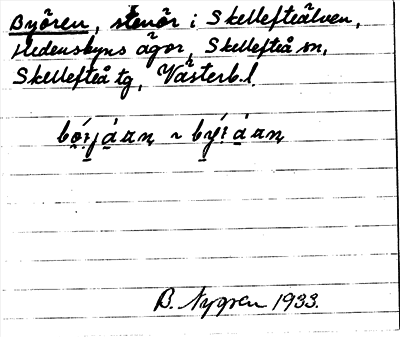 Byören, stenör i Skellefteälven,
Hedensbyns ägor, Skellefteå sn,
Skellefteå tg, Västerb. l.
B. Nygren 1933.